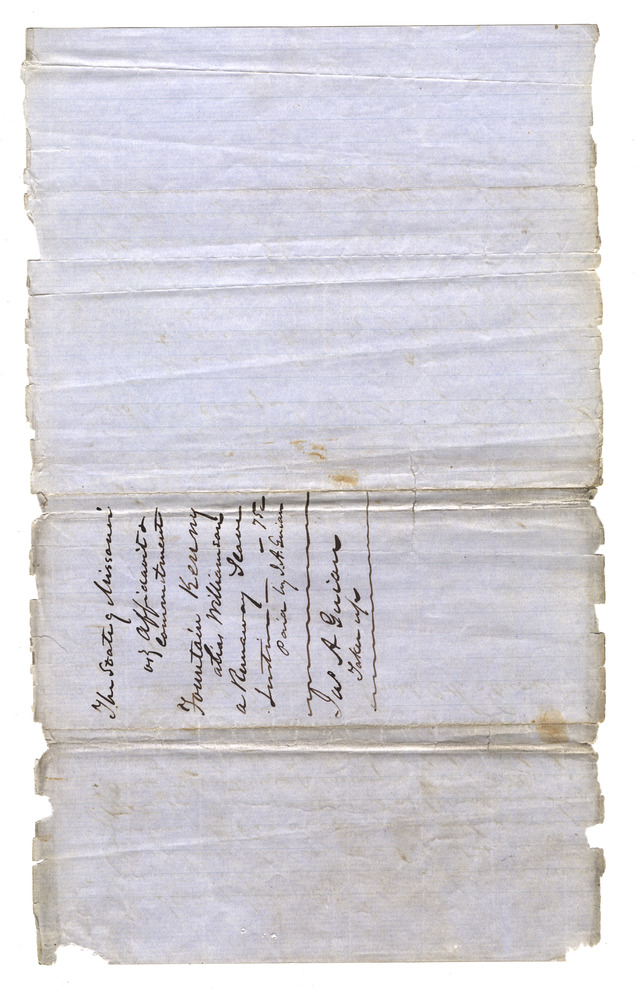 The State of Missouri
vs} Affidavit &
commitment
Fountain Kenny
alias Williamson
a Runaway Slave
Justice 75
Paid by J. A. Guian
Jas A Guian
Taker up